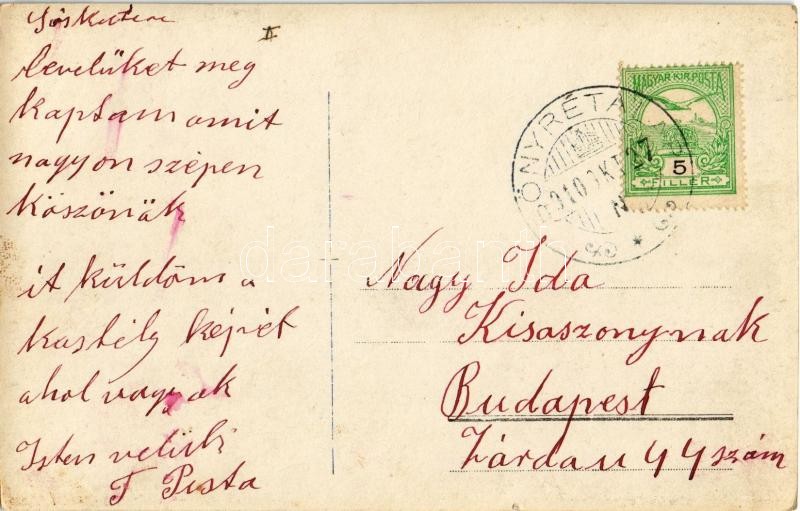 levelüket meg
kaptam amit
nagyon szépen
köszönök
it küldöm a
kastély képét
ahol vagyok
Isten velük
F Pista
MAGYAR·KIR·POSTA
5
FILLÉR
910 OKT 27
N
Nagy Ida
Kisaszonynak
Budapest
Zárda u 44 szám
darabanth